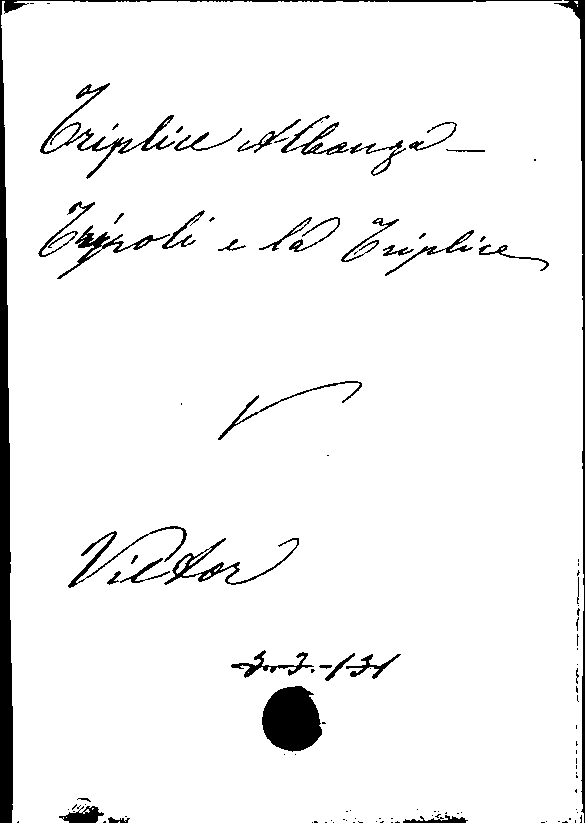 Triplice Alleanza —
Tripoli e la Triplice
V
Victor
3.-3.-131